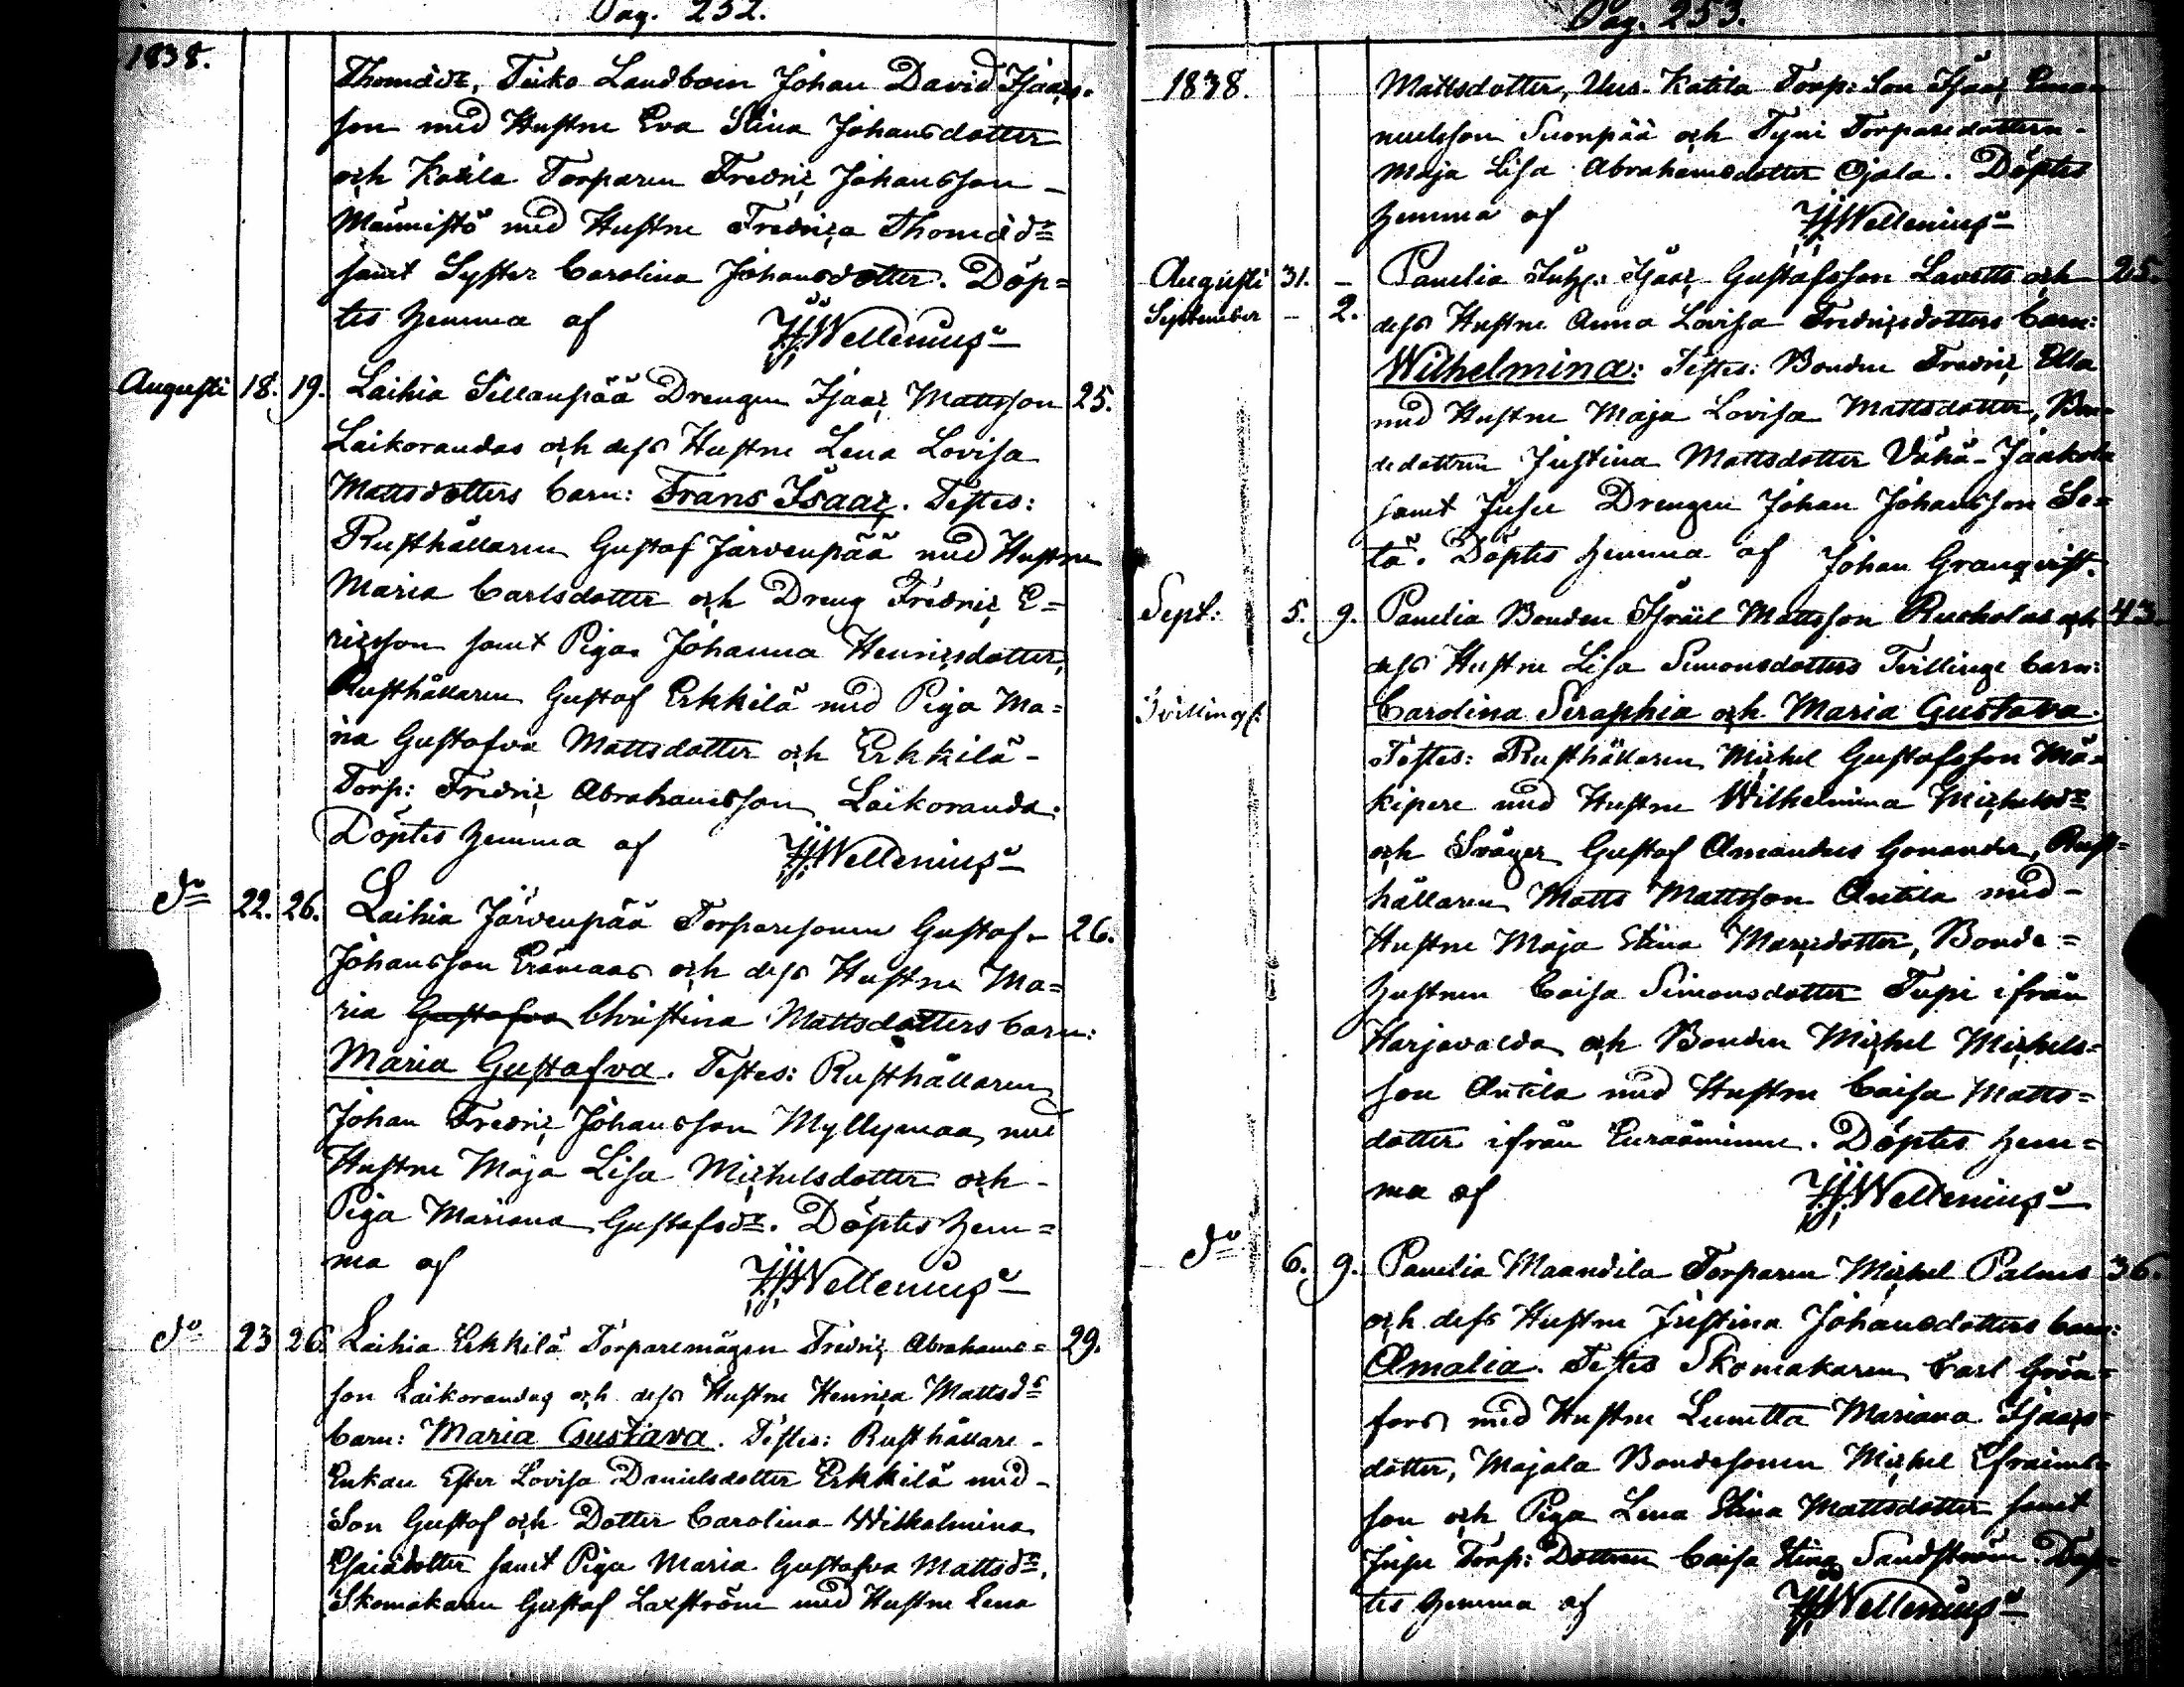 Pag. 252.
1838.
Thomädr, Tuko Landboen Johan David Isaacs-
son med Hustru Eva Stina Johansdotter
och Katila Torparen Fredric Johansson -
Männistö med Hustru Fredrica Thomäd:r
samt Syster Carolina Johansdotter. Döp=
tes hemma af HJWellenius
Augusti 18. 19. Laihia Sillanpää Drengen Isaac Mattsson 25.
Laikorandas och dess Hustru Lena Lovisa
Mattsdotters barn: Frans Isaac. Testes:
Rusthållaren Gustaf Järvenpää med Hustru
Maria Carlsdotter och Dreng Fredric E=
ricsson samt Pigan Johanna Henricsdotter,
Rusthållaren Gustaf Erkkilä med Piga Ma=
ria Gustafva Mattsdotter och Erkkilä-
Torp: Fredric Abrahamsson Laikoranda.
Döptes hemma af HJWellenius
do 22. 26. Laihia Järvenpää Torparesonen Gustaf - 26.
Johansson Erämaas och dess Hustru Ma=
ria Gustafva Christina Mattsdotters barn:
Maria Gustafva. Testes: Rusthållaren
Johan Fredric Johansson Myllymaa med
Hustru Maja Lisa Michelsdotter och -
Piga Mariana Gustafsdr. Döptes hem=
ma af HJWellenius
do 23 26 Laihia Erkkilä Torparemågen Fredric Abrahams= 29.
son Laikorandas och dess Hustru Henrica Mattsdr
barn: Maria Gustava. Testes: Rusthållare -
Enkan Ester Lovisa Danielsdotter Erkkilä med -
Son Gustaf och Dotter Carolina Wilhelmina
Esaiädotter samt Piga Maria Gustafva Mattsdr.
Skomakaren Gustaf Laxström med Hustru Lena
Pag. 253.
1838.
Mattsdotter, Uus-Katila Torp: Son Isaac Ema-
nuelsson Suonpää och Tyni Torparedottern -
Maja Lisa Abrahamsdotter Ojala. Döptes
hemma af HJWellenius
Augusti 31. - Panelia Inh: Isaac Gustafsson Lavetts och 25.
September - 2. dess Hustru Anna Lovisa Fredricsdotters barn:
Wilhelmina: Testes: Bonden Fredric Olla
med Hustru Maja Lovisa Mattsdotter, Bon-
dedottren Justina Mattsdotter Vähä-Jaakola
samt Drengen Johan Johansson Se=
tä. Döptes hemma af Johan Granqvist.
Sept: 5. 9. Panelia Bonden Israel Mattsson Ruoholas och 43.
dess Hustru Lisa Simonsdotters Tvillinge barn:
Tvillingf: Carolina Seraphia och Maria Gustava.
Testes: Rusthållaren Michel Gustafsson Mä-
kipere med Hustru Wilhelmina Michelsdr
och Svåger Gustaf Amandus Gonander, Rust=
hållaren Matts Mattsson Antila med -
Hustru Maja Stina Marcsdotter, Bonde=
hustrun Caisa Simonsdotter Tupi ifrån
Harjavalda och Bonden Michel Michels=
son Antila med Hustru Caisa Matts=
dotter ifrån Euraåminne. Döptes hem=
ma af HJWellenius
do 6. 9. Panelia Maandila Torparen Michel Palmes 36.
och dess Hustru Justina Johansdotters barn:
Amalia. Testes Skomakaren Carl Grön=
fors med Hustru Lunetta Mariana Isaacs=
dotter, Majala Bondesonen Michel Efraims=
son och Piga Lena Stina Mattsdotter samt
Torp: Dottren Caisa Stina Sandström. Döp=
tes hemma af HJWellenius